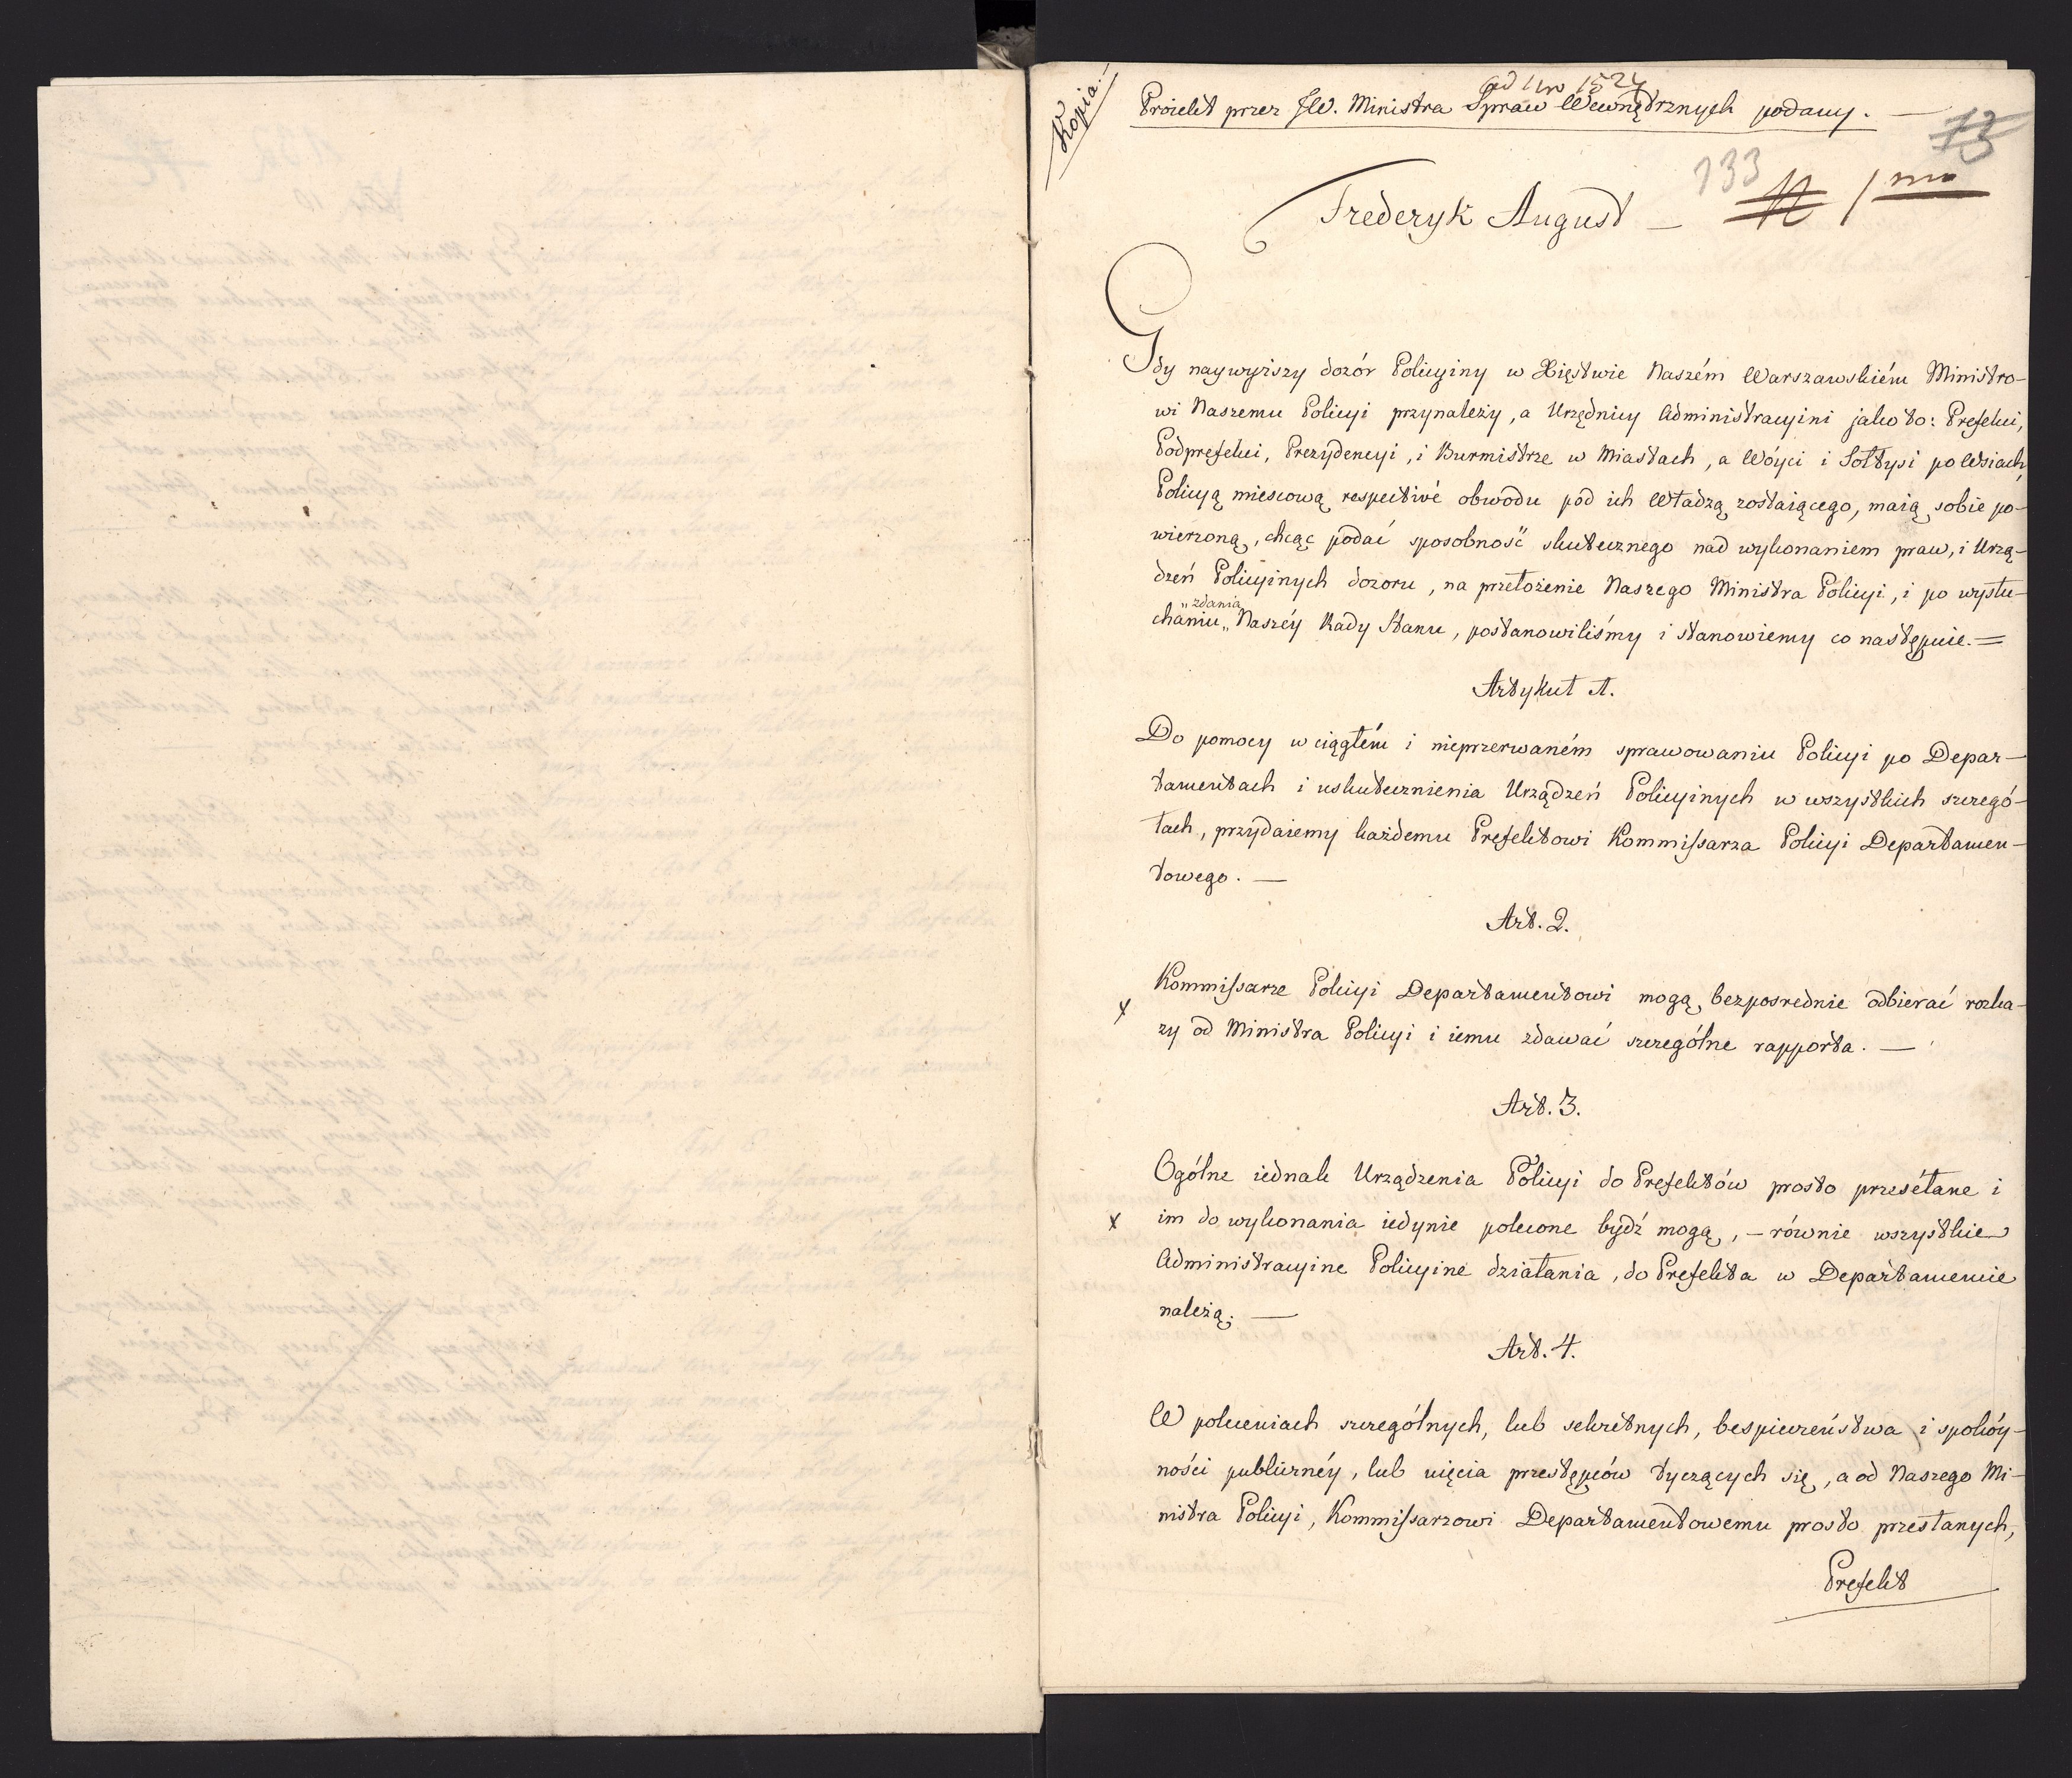 Kopia.
ad Nro 1524
Proiekt przez JW. Ministra Spraw Wewnętrznych podany. —
73
133
1mo
Frederyk August —
Gdy naywyiszy dozór Policyiny w Xięstwie Naszém Warszawskiém Ministro-
wi Naszemu Policyi przynależy, a Urzędnicy Administracyini jako to: Prefekci,
Podprefekci, Prezydencyi, i Burmistrze w Miastach, a Wóyci i Sołtysi po Wsiach,
Policyą miescową respective obwodu pod ich Władzą zostaiącego, maią sobie po-
wierzoną, chcąc podać sposobność skutecznego nad wykonaniem praw, i Urzą-
dzeń Policyinych dozoru, na przełożenie Naszego Ministra Policyi, i po wysłu-
„zdania
chaniu „ Naszéy Rady Stanu, postanowiliśmy i stanowiemy co następuie. =
Artykuł 1.
Do pomocy w ciągłém i nieprzerwaném sprawowaniu Policyi po Depar-
tamentach i uskutecznienia Urządzeń Policyinych w wszystkich szczegó-
łach, przydaiemy każdemu Prefektowi Kommissarza Policyi Departamen-
towego. —
Art. 2.
Kommissarze Policyi Departamentowi mogą bezposrednie odbierać rozka-
x
zy od Ministra Policyi i iemu zdawać szczególne rapporta. —
Art. 3.
Ogólne iednak Urządzenia Policyi do Prefektów prosto przesełane i
x im do wykonania iedynie polecone bydź mogą, — równie wszystkie
Administracyine Policyine działania, do Prefekta w Departamencie
należą. —
Art. 4.
W poleceniach szczególnych, lub sekretnych, bespieczeństwa i spokóy-
ności publicznéy, lub uięcia przestępców tyczących się, a od Naszego Mi-
nistra Policyi, Kommissarzowi Departamentowemu prosto przesłanych,
Prefekt